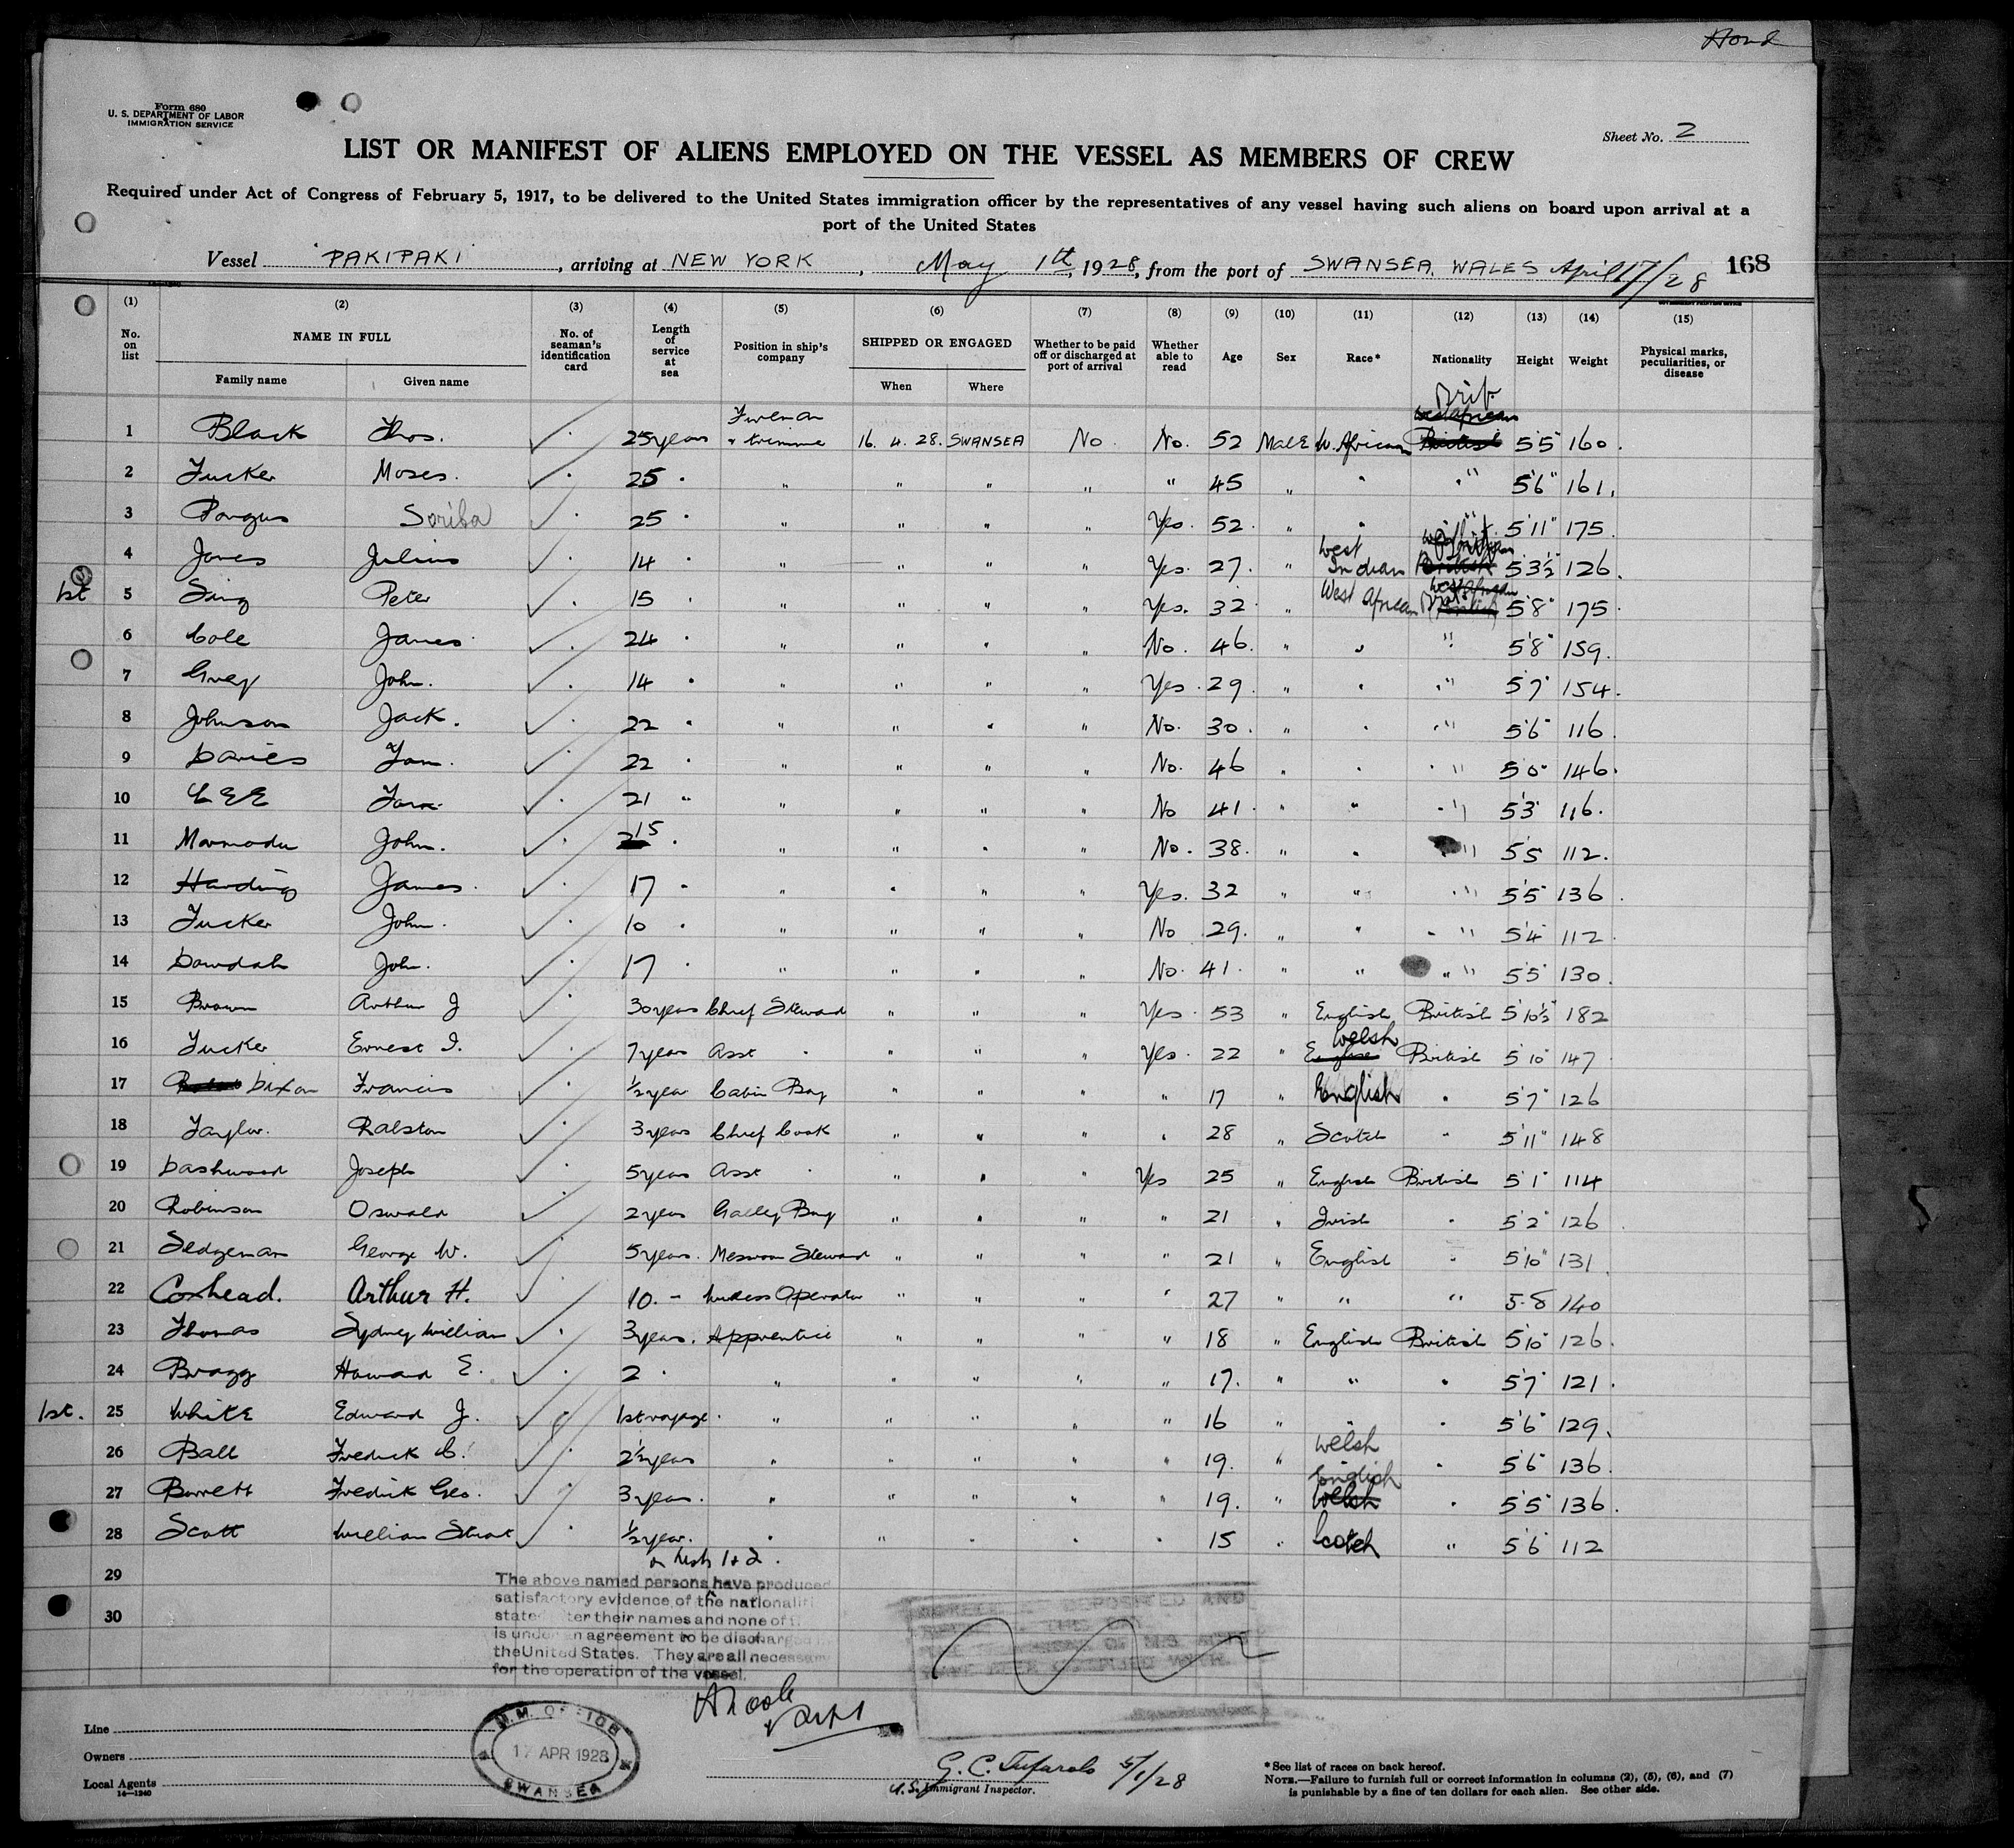 Form 680
U. S. DEPARTMENT OF LABOR
IMMIGRATION SERVICE
Sheet No. 2
LIST OR MANIFEST OF ALIENS EMPLOYED ON THE VESSEL AS MEMBERS OF CREW
Required under Act of Congress of February 5, 1917, to be delivered to the United States immigration officer by the representatives of any vessel having such aliens on board upon arrival at a
port of the United States
Vessel PAKIPAKI, arriving at NEW YORK, May 1th, 1928, from the port of SWANSEA, WALES April 17/28 168
(1) (2) (3) (4) (5) (6) (7) (8) (9) (10) (11) (12) (13) (14) (15)
No. on list NAME IN FULL Family name Given name No. of seaman's identification card Length of service at sea Position in ship's company SHIPPED OR ENGAGED When Where Whether to be paid off or discharged at port of arrival Whether able to read Age Sex Race* Nationality Height Weight Physical marks, peculiarities, or disease
Brit.
1 Black Thos. 25 years Fireman & trimmer 16. 4. 28. SWANSEA No. No. 52 Male W. African British 5'5" 160.
2 Tucker Moses. 25 " " " " " " 45 " " " 5'6" 161.
3 Pangus Soriba 25 " " " " " Yes. 52. " " " 5'11" 175.
4 Jones Julius 14 " " " " " Yes. 27. " West Indian British 5'3½ 126.
1st 5 Sing Peter 15 " " " " Yes. 32 " West African British 5'8" 175.
6 Cole James 24 " " " " " No. 46. " " " 5'8" 159.
7 Grey John. 14 " " " " " Yes. 29. " " " 5'7" 154.
8 Johnson Jack. 22 " " " " " No. 30. " " " 5'6" 116.
9 Davies Tom. 22 " " " " " No. 46 " " " 5'0" 146.
10 LEE Tom. 21 " " " " " No 41. " " " 5'3" 116.
11 Mormodu John. 15 " " " " " No. 38. " " " 5'5 112.
12 Harding James. 17 " " " " " Yes. 32 " " " 5'5" 136.
13 Tucker John. 10 " " " " " No 29. " " " 5'4" 112.
14 Dowdah John. 17 " " " " " No. 41. " " " 5'5" 130.
15 Brown Arthur J 30 years Chief Steward " " " Yes. 53 " English British 5'10½ 182
16 Tucker Ernest I. 7 years Asst " " " " Yes. 22 " English Welsh British 5'10" 147.
17 Dixon Francis ½ year Cabin Boy " " " " 17 " English " 5'7" 126
18 Taylor. Ralston 3 years Chief Cook " " " " 28 " Scotch " 5'11" 148
19 Dashwood Joseph 5 years Asst " " " " Yes 25 " English British 5'1" 114
20 Robinson Oswald 2 years Galley Boy " " " " 21 " Irish " 5'2" 126
21 Sedgeman George W. 5 years. Messroom Steward " " " " 21 " English " 5'10" 131
22 Coxhead. Arthur H. 10. - Wireless Operator " " " " 27 " " " 5.8 140
23 Thomas Sydney William 3 years. Apprentice " " " " 18 " English British 5'10" 126.
24 Bragg Howard E. 2 " " " " " " 17. " " " 5'7" 121.
1st. 25 White Edward J. 1st voyage. " " " " " 16 " " " 5'6" 129.
26 Ball Fredrick C. 2½ years " " " " " 19. " Welsh " 5'6" 136.
27 Barrett Fredrik Geo. 3 years. " " " " " 19. " Welsh English " 5'5" 136.
28 Scott William Stuart ½ year. " " " " " 15 " Scotch " 5'6" 112
29
30
The above named persons have produced
satisfactory evidence of the nationaliti
state ter their names and none of
is under an agreement to be discharged
the United States. They are all necessary
for the operation of the vessel.
Line
Owners
Local Agents
14—1240
M.M. OFFICE
17 APR 1928
SWANSEA
5/1/28
U.S. Immigrant Inspector.
*See list of races on back hereof.
NOTE.—Failure to furnish full or correct information in columns (2), (5), (6), and (7)
is punishable by a fine of ten dollars for each alien. See other side.